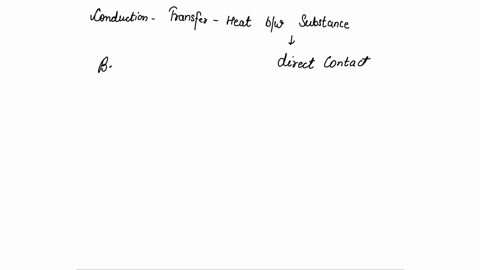 Conduction - Transfer - Heat b/w Substance
↓
B.
direct Contact